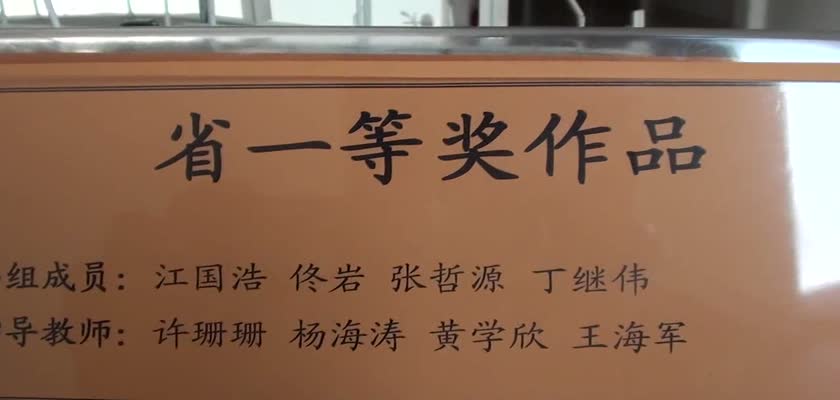 省一等奖作品
组成员：江国浩 佟岩 张哲源 丁继伟
导教师：许珊珊 杨海涛 黄学欣 王海军